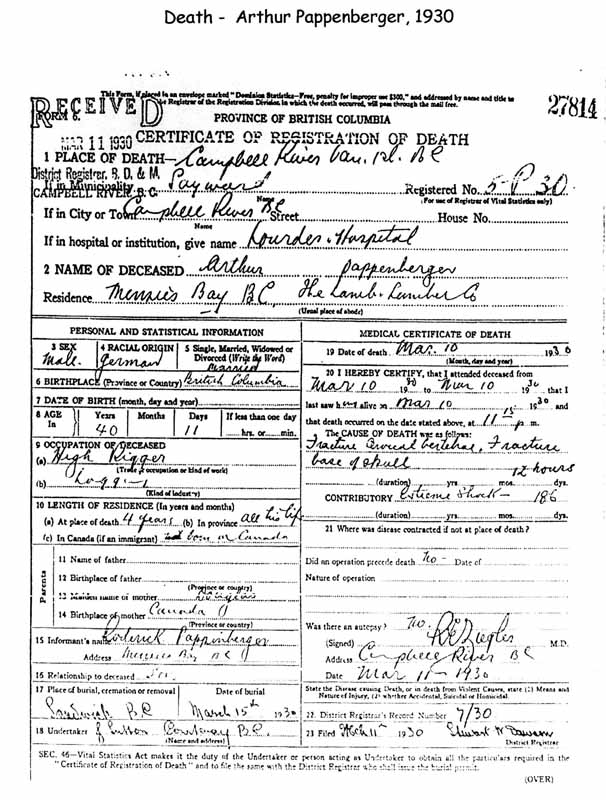 Death - Arthur Pappenberger, 1930
This Form, if placed in an envelope marked "Dominion Statistics—Free, penalty for improper use $300," and addressed by name and title to
the Registrar of the Registration Division in which the death occurred, will pass through the mail free.
RECEIVED
FORM 6.
27814
PROVINCE OF BRITISH COLUMBIA
MAR 11 1930 CERTIFICATE OF REGISTRATION OF DEATH
1 PLACE OF DEATH— Campbell River Van. Isl. BC
District Registrar, B. D. & M.
CAMPBELL RIVER, B.C.
If in Municipality Sayward Registered No. 30
Name (For use of Registrar of Vital Statistics only)
If in City or Town Campbell River BC Street House No.
Name
If in hospital or institution, give name Lourdes Hospital
2 NAME OF DECEASED Arthur Pappenberger
Residence Menzie's Bay B C, The Lamb Lumber Co
(Usual place of abode)
PERSONAL AND STATISTICAL INFORMATION
3 SEX 4 RACIAL ORIGIN 5 Single, Married, Widowed or
Divorced (Write the Word)
Male. German Married
6 BIRTHPLACE (Province or Country) British Columbia
7 DATE OF BIRTH (month, day and year)
8 AGE Years Months Days If less than one day
In 40 11 hrs. or min.
9 OCCUPATION OF DECEASED
(a) High Rigger
(Trade, occupation or kind of work)
(b)
(Kind of industry)
10 LENGTH OF RESIDENCE (In years and months)
(a) At place of death 4 years (b) In province all his life
(c) In Canada (if an immigrant) born in Canada
Parents
11 Name of father
12 Birthplace of father
(Province or country)
13 Maiden name of mother
14 Birthplace of mother Canada
(Province or country)
15 Informant's name Roderick Pappenberger
Address Menzies Bay B C
16 Relationship to deceased
17 Place of burial, cremation or removal Date of burial
Sandwick B.C March 15th 1930
18 Undertaker Sutton Courtenay B.C.
(Name and address)
MEDICAL CERTIFICATE OF DEATH
19 Date of death Mar. 10 1930
(Month, day and year)
20 I HEREBY CERTIFY, that I attended deceased from
Mar 10 1930 to Mar 10 1930, that I
last saw him alive on Mar 10 1930 and
that death occurred on the date stated above, at 11 15 p m.
The CAUSE OF DEATH was as follows:
Fracture Cervical Vertebrae, Fracture
base of skull 12 hours
(duration) yrs. mos. dys.
CONTRIBUTORY Extreme Shock — 186
(duration) yrs. mos. dys.
21 Where was disease contracted if not at place of death?
Did an operation precede death No - Date of
Nature of operation
Was there an autopsy? No.
(Signed) M.D.
Address Campbell River BC
Date Mar 11 - 1930
State the Disease causing Death, or in death from Violent Causes, state (1) Means and
Nature of Injury, (2) whether Accidental, Suicidal or Homicidal.
22. District Registrar's Record Number 7/30
23 Filed 11 1930 Stewart Dawson
District Registrar
SEC. 46—Vital Statistics Act makes it the duty of the Undertaker or person acting as Undertaker to obtain all the particulars required in the
"Certificate of Registration of Death" and to file the same with the District Registrar who shall issue the burial permit.
(OVER)